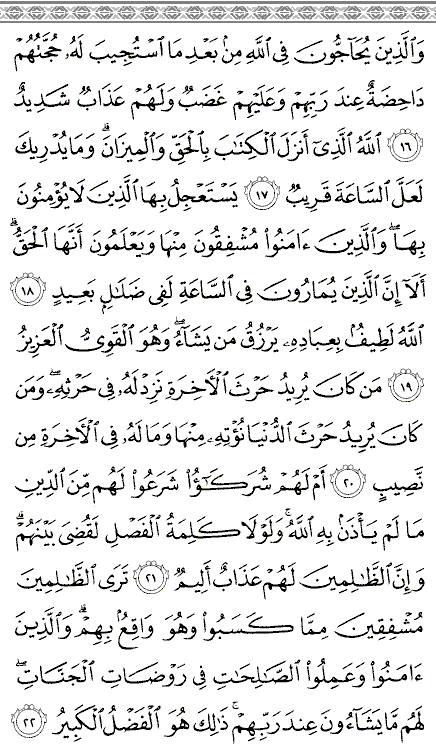 وَٱلَّذِينَ يُحَآجُّونَ فِى ٱللَّهِ مِنۢ بَعْدِ مَا ٱسْتُجِيبَ لَهُۥ حُجَّتُهُمْ
دَاحِضَةٌ عِندَ رَبِّهِمْ وَعَلَيْهِمْ غَضَبٌ وَلَهُمْ عَذَابٌ شَدِيدٌ
١٦ ٱللَّهُ ٱلَّذِىٓ أَنزَلَ ٱلْكِتَٰبَ بِٱلْحَقِّ وَٱلْمِيزَانَ ۗ وَمَا يُدْرِيكَ
لَعَلَّ ٱلسَّاعَةَ قَرِيبٌ ١٧ يَسْتَعْجِلُ بِهَا ٱلَّذِينَ لَا يُؤْمِنُونَ
بِهَا ۖ وَٱلَّذِينَ ءَامَنُوا۟ مُشْفِقُونَ مِنْهَا وَيَعْلَمُونَ أَنَّهَا ٱلْحَقُّ ۗ
أَلَآ إِنَّ ٱلَّذِينَ يُمَارُونَ فِى ٱلسَّاعَةِ لَفِى ضَلَٰلٍۭ بَعِيدٍ ١٨
ٱللَّهُ لَطِيفٌۢ بِعِبَادِهِۦ يَرْزُقُ مَن يَشَآءُ ۖ وَهُوَ ٱلْقَوِىُّ ٱلْعَزِيزُ
١٩ مَن كَانَ يُرِيدُ حَرْثَ ٱلْءَاخِرَةِ نَزِدْ لَهُۥ فِى حَرْثِهِۦ ۖ وَمَن
كَانَ يُرِيدُ حَرْثَ ٱلدُّنْيَا نُؤْتِهِۦ مِنْهَا وَمَا لَهُۥ فِى ٱلْءَاخِرَةِ مِن
نَّصِيبٍ ٢٠ أَمْ لَهُمْ شُرَكَٰٓؤُا۟ شَرَعُوا۟ لَهُم مِّنَ ٱلدِّينِ
مَا لَمْ يَأْذَنۢ بِهِ ٱللَّهُ ۚ وَلَوْلَا كَلِمَةُ ٱلْفَصْلِ لَقُضِىَ بَيْنَهُمْ ۗ
وَإِنَّ ٱلظَّٰلِمِينَ لَهُمْ عَذَابٌ أَلِيمٌ ٢١ تَرَى ٱلظَّٰلِمِينَ
مُشْفِقِينَ مِمَّا كَسَبُوا۟ وَهُوَ وَاقِعٌۢ بِهِمْ ۗ وَٱلَّذِينَ
ءَامَنُوا۟ وَعَمِلُوا۟ ٱلصَّٰلِحَٰتِ فِى رَوْضَاتِ ٱلْجَنَّاتِ ۖ
لَهُم مَّا يَشَآءُونَ عِندَ رَبِّهِمْ ۚ ذَٰلِكَ هُوَ ٱلْفَضْلُ ٱلْكَبِيرُ ٢٢